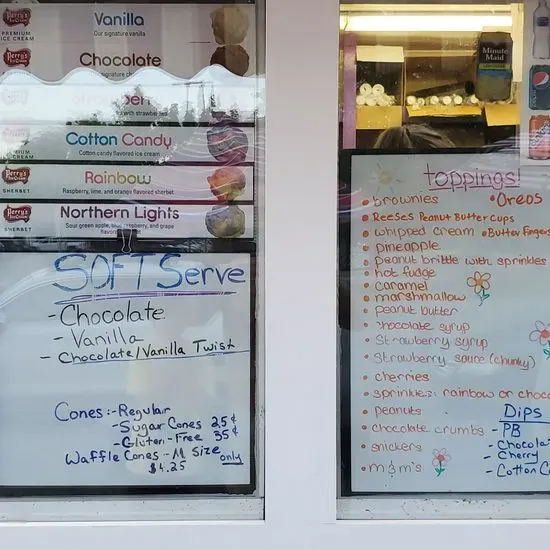 Perry's
PREMIUM
ICE CREAM
Vanilla
Our signature vanilla
Perry's
PREMIUM
ICE CREAM
Chocolate
Cotton Candy
Cotton candy flavored ice cream
Perry's
SHERBET
Rainbow
Raspberry, lime, and orange flavored sherbet
Perry's
SHERBET
Northern Lights
SOFT Serve
- Chocolate
- Vanilla
- Chocolate/Vanilla Twist
Cones:- Regular
- Sugar Cones 25¢
- Gluten-Free 35¢
Waffle Cones - M Size only
$4.25
Minute
Maid
pepsi
toppings!
• brownies • Oreos
• Reeses Peanut Butter cups
• whipped cream • Butter Fingers
• pineapple
• peanut brittle with sprinkles
• hot fudge
• caramel
• marshmallow
• peanut butter
• chocolate syrup
• Strawberry syrup
• Strawberry sauce (chunky)
• cherries
• sprinkles: rainbow or choco
• peanuts
• chocolate crumbs
• snickers
• m&m's
Dips
- PB
- Chocola
- Cherry
- Cotton Ca